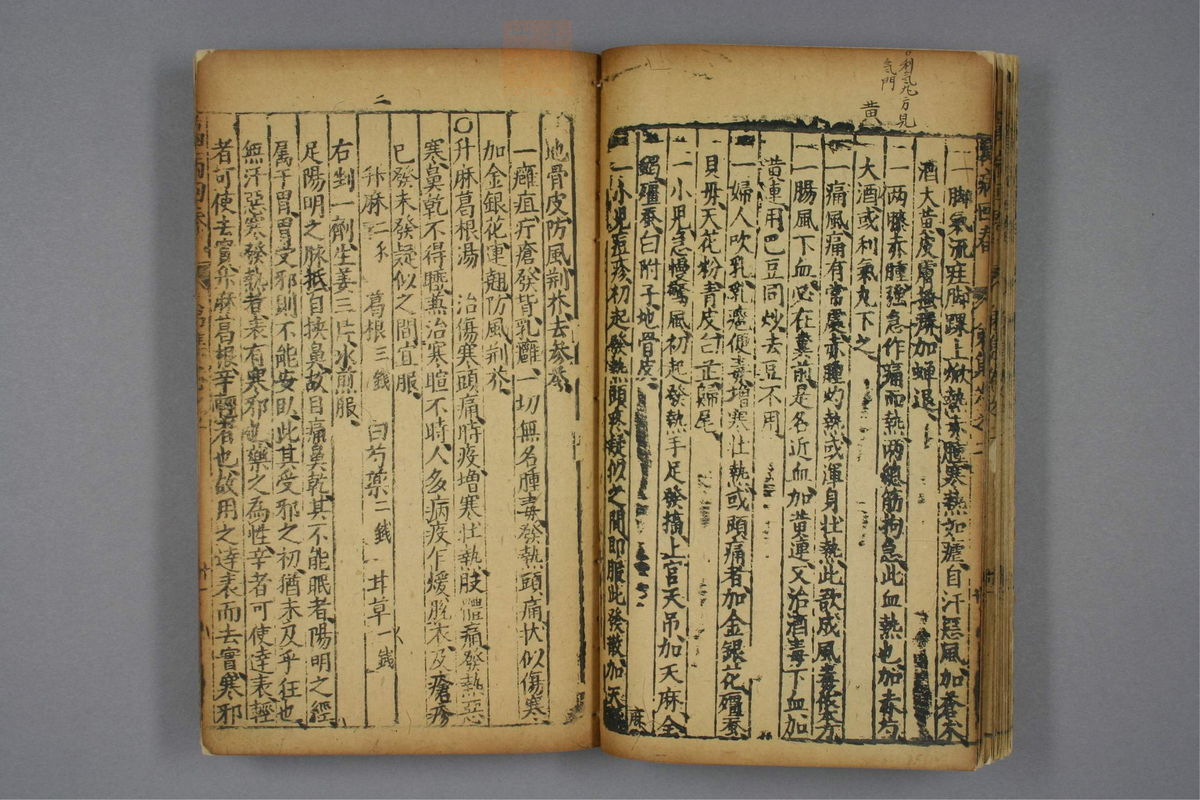 利氣丸方見
氣門
黃
一脚氣流注脚踝上焮熱赤腫寒熱如瘧自汗惡風加蒼朮
酒大黃皮膚搔癢加蟬退
一兩膝赤腫强急作痛而熱兩腿筋拘急此血熱也加赤芍
大酒或利氣丸下之
一痛風痛有常處赤腫灼熱或渾身壯熱此欲成風毒依本方
一腸風下血必在糞前是名近血加黃連又治酒毒下血加
黃連用巴豆同炒去豆不用
一婦人吹乳乳癰便毒增寒壯熱或頭痛者加金銀花殭蚕
貝母天花粉青皮白芷歸尾
一小兒急慢驚風初起發熱手足發搐上宮天吊加天麻全
蝎殭蚕白附子地骨皮
一小兒痘疹初起發熱頭疼疑似之間即服此發散加天
麻
二
地骨皮防風荆朩去參苓
一癰疽疔瘡發背乳癰一切無名腫毒發熱頭痛狀似傷寒
加金銀花連翹防風荆芥
○升麻葛根湯 治傷寒頭痛時疫增寒壯熱肢體痛發熱惡
寒鼻乾不得睡兼治寒暄不時人多病疫乍煖脫衣及瘡疹
已發未發疑似之間宜服
升麻二錢 葛根三錢 白芍藥二錢 甘草一錢
右剉一劑生姜三片水煎服
足陽明之脉抵自挾鼻故目痛鼻乾其不能眠者陽明之經
屬于胃胃受邪則不能安臥此其受邪之初猶未及乎狂也
無汗惡寒發熱者表有寒邪也藥之爲性辛者可使達表輕
者可使去實升麻葛根辛輕者也故用之達表而去實寒邪